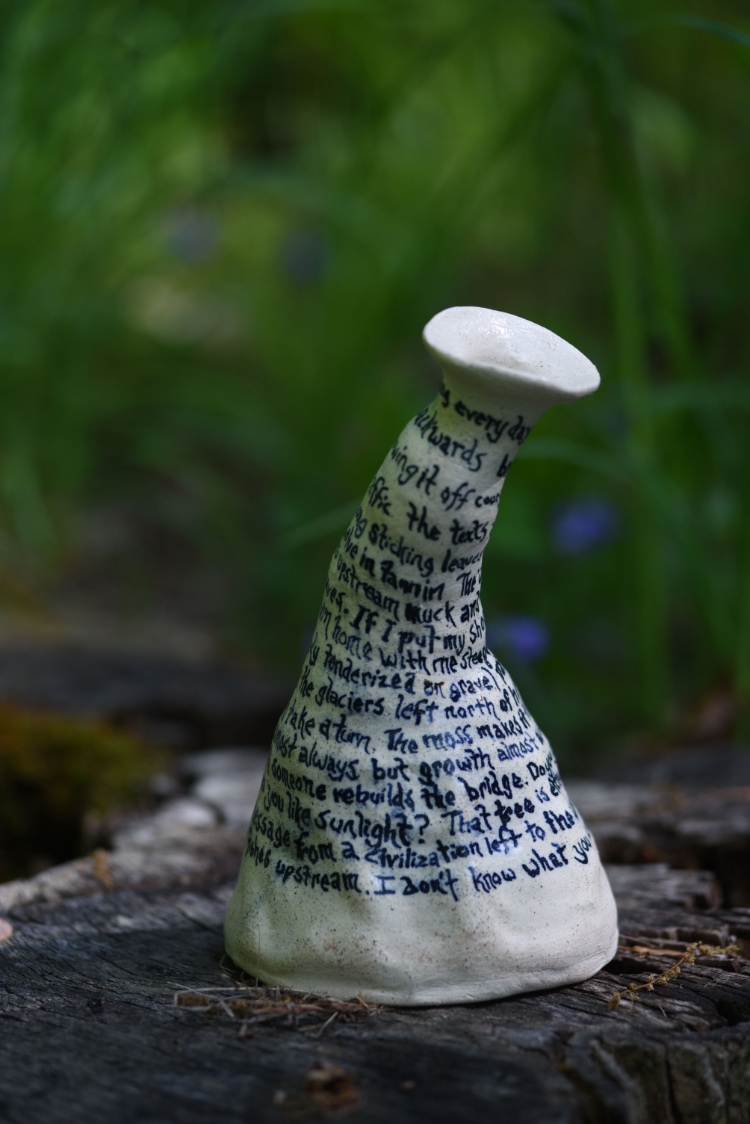 every day
wards
ing it off
ffic the texts
sticking leaves
in Fannin. The
upstream muck and
ves. If I put my sho
home with me
tenderized on gravel
the glaciers left north of
take a turn. The moss makes
ost always, but growth almost
someone rebuilds the bridge. Do
you like sunlight? That tree is
essage from a civilization left to the
upstream. I don't know what you